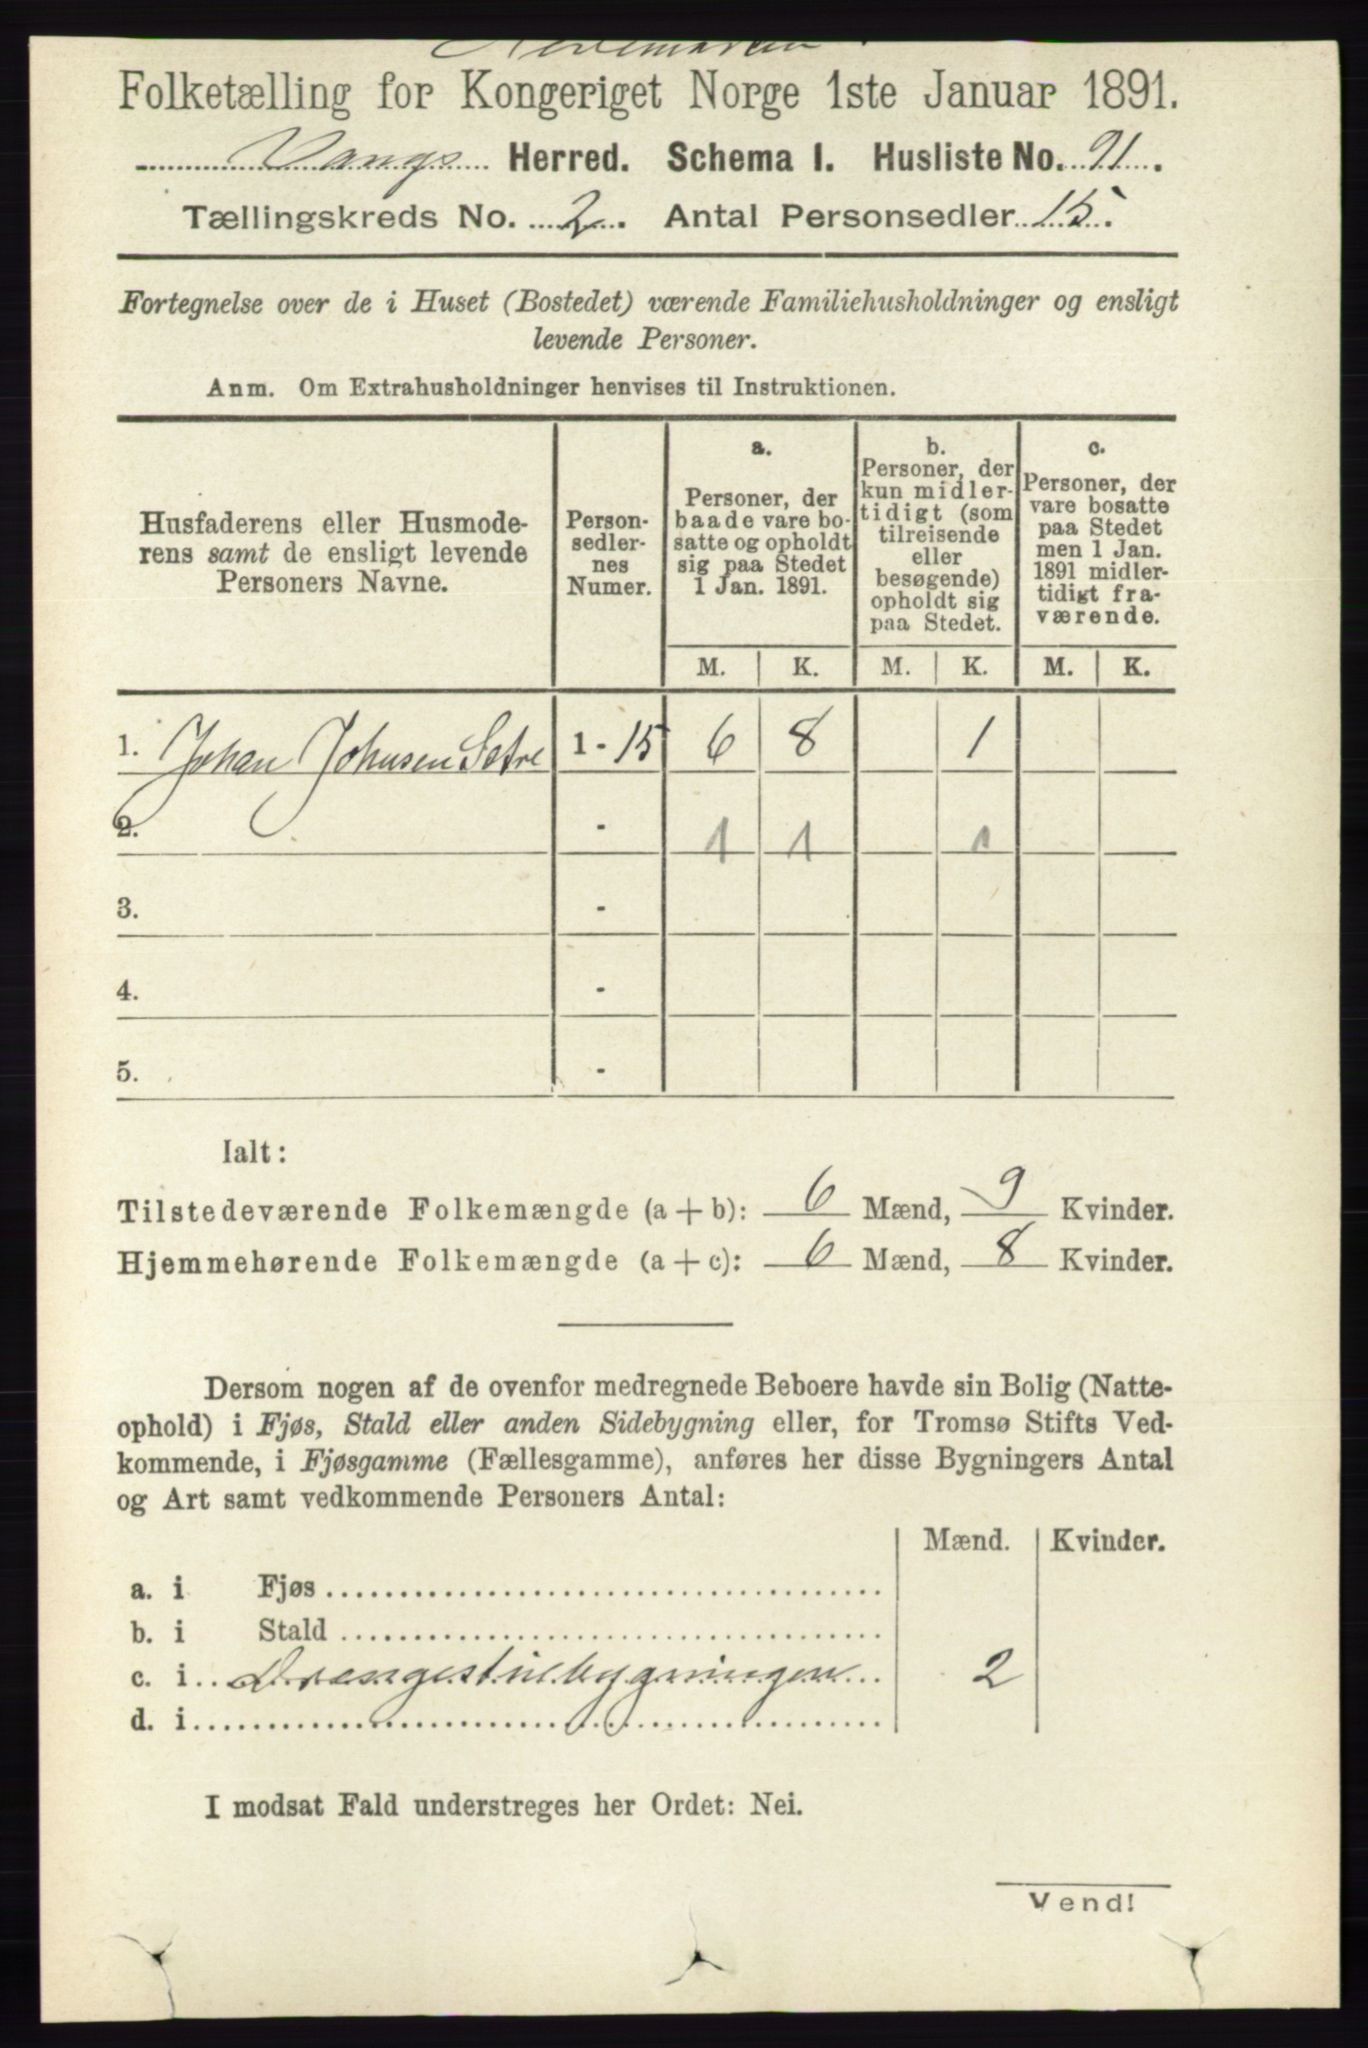 Hedemarken
Folketælling for Kongeriget Norge 1ste Januar 1891.
Vangs Herred. Schema I. Husliste No. 91.
Tællingskreds No. 2. Antal Personsedler 15.
Fortegnelse over de i Huset (Bostedet) værende Familiehusholdninger og ensligt
levende Personer.
Anm. Om Extrahusholdninger henvises til Instruktionen.
Husfaderens eller Husmode-
rens samt de ensligt levende
Personers Navne.
Person-
sedler-
nes
Numer.
a.
Personer, der
baade vare bo-
satte og opholdt
sig paa Stedet
1 Jan. 1891.
b.
Personer, der
kun midler-
tidigt (som
tilreisende
eller
besøgende)
opholdt sig
paa Stedet.
c.
Personer, der
vare bosatte
paa Stedet
men 1 Jan.
1891 midler-
tidigt fra-
værende.
M. K. M. K. M. K.
1. Johan Johnsen Setre 1 - 15 6 8 1
2. - 1 1 1
3. -
4. -
5. -
Ialt:
Tilstedeværende Folkemængde (a + b): 6 Mænd, 9 Kvinder.
Hjemmehørende Folkemængde (a + c): 6 Mænd, 8 Kvinder.
Dersom nogen af de ovenfor medregnede Beboere havde sin Bolig (Natte-
ophold) i Fjøs, Stald eller anden Sidebygning eller, for Tromsø Stifts Ved-
kommende, i Fjøsgamme (Fællesgamme), anføres her disse Bygningers Antal
og Art samt vedkommende Personers Antal:
Mænd. Kvinder.
a. i Fjøs
b. i Stald
c. i Drengestuebygningen 2
d. i
I modsat Fald understreges her Ordet: Nei.
Vend!